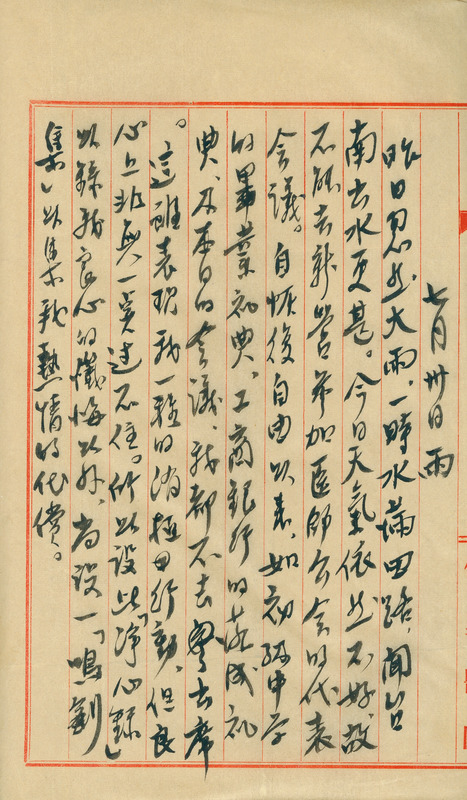 七月卅日 雨
昨日忽然大雨，一時水滿田路，聞台
南出水更甚。今日天氣依然不好，故
不能去新營參加医師公会的代表
会議。自恢復自由以來，如初級中学
的畢業初典、工商銀行的落成礼
典、及本日的会議，我都不去出席
。這雖表現我一種的消極的行動，但良
心上非無一奌过不住。所以設此「净心錄」
以錄我良心的懺悔以外，尚設一「鳴劍
集」以集我熱情的代償。